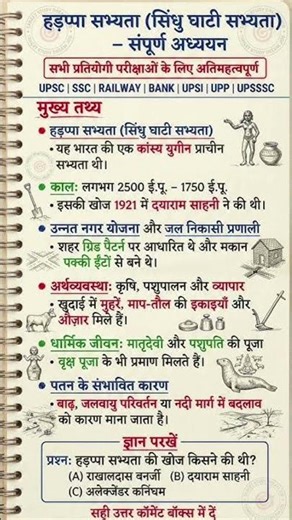 हड़प्पा सभ्यता (सिंधु घाटी सभ्यता)
– संपूर्ण अध्ययन
सभी प्रतियोगी परीक्षाओं के लिए अतिमहत्वपूर्ण
UPSC | SSC | RAILWAY | BANK | UPSI | UPP | UPSSSC
मुख्य तथ्य
• हड़प्पा सभ्यता (सिंधु घाटी सभ्यता)
• यह भारत की एक कांस्य युगीन प्राचीन
सभ्यता थी।
• काल: लगभग 2500 ई.पू. – 1750 ई.पू.
• इसकी खोज 1921 में दयाराम साहनी ने की थी।
• उन्नत नगर योजना और जल निकासी प्रणाली
• शहर ग्रिड पैटर्न पर आधारित थे और मकान
पक्की ईंटों से बने थे।
• अर्थव्यवस्था: कृषि, पशुपालन और व्यापार
• खुदाई में मुहरें, माप-तौल की इकाइयाँ और
औज़ार मिले हैं।
• धार्मिक जीवन: मातृदेवी और पशुपति की पूजा
• वृक्ष पूजा के भी प्रमाण मिलते हैं।
• पतन के संभावित कारण
• बाढ़, जलवायु परिवर्तन या नदी मार्ग में बदलाव
को कारण माना जाता है।
ज्ञान परखें
प्रश्न: हड़प्पा सभ्यता की खोज किसने की थी?
(A) राखालदास बनर्जी (B) दयाराम साहनी
(C) अलेक्जेंडर कनिंघम
सही उत्तर कॉमेंट बॉक्स में दें